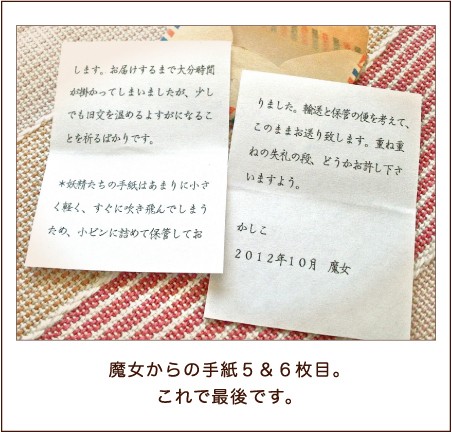 します。お届けするまで大分時間
が掛かってしまいましたが、少し
でも旧交を温めるよすがになるこ
とを祈るばかりです。
*妖精たちの手紙はあまりに小さ
く軽く、すぐに吹き飛んでしまう
ため、小ビンに詰めて保管してお
りました。輸送と保管の便を考えて、
このままお送り致します。重ね重
ねの失礼の段、どうかお許し下さ
いますよう。
かしこ
2012年10月 魔女
魔女からの手紙5&6枚目。
これで最後です。